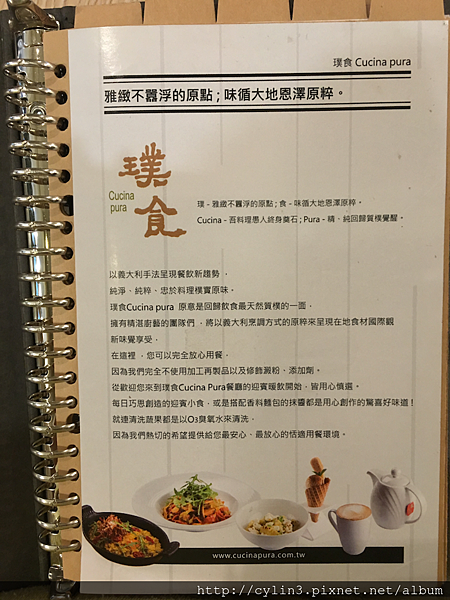 璞食 Cucina pura
雅緻不囂浮的原點；味循大地恩澤原粹。
璞食
Cucina
pura
璞－雅緻不囂浮的原點；食－味循大地恩澤原粹。
Cucina－吾料理愚人終身奠石；Pura－精、純回歸質樸覺醒。
以義大利手法呈現餐飲新趨勢，
純淨、純粹、忠於料理樸實原味。
璞食Cucina pura 原意是回歸飲食最天然質樸的一面，
擁有精湛廚藝的團隊們，將以義大利烹調方式的原粹來呈現在地食材國際觀
新味覺享受，
在這裡，您可以完全放心用餐，
因為我們完全不使用加工再製品以及修飾澱粉、添加劑。
從歡迎您來到璞食Cucina Pura餐廳的迎賓暖飲開始，皆用心慎選。
每日巧思創造的迎賓小食，或是搭配香料麵包的抹醬都是用心創作的驚喜好味道！
就連清洗蔬果都是以O3臭氧水來清洗，
因為我們熱切的希望提供給您最安心、最放心的恬適用餐環境。
www.cucinapura.com.tw
http://cylin3.pixnet.net/album